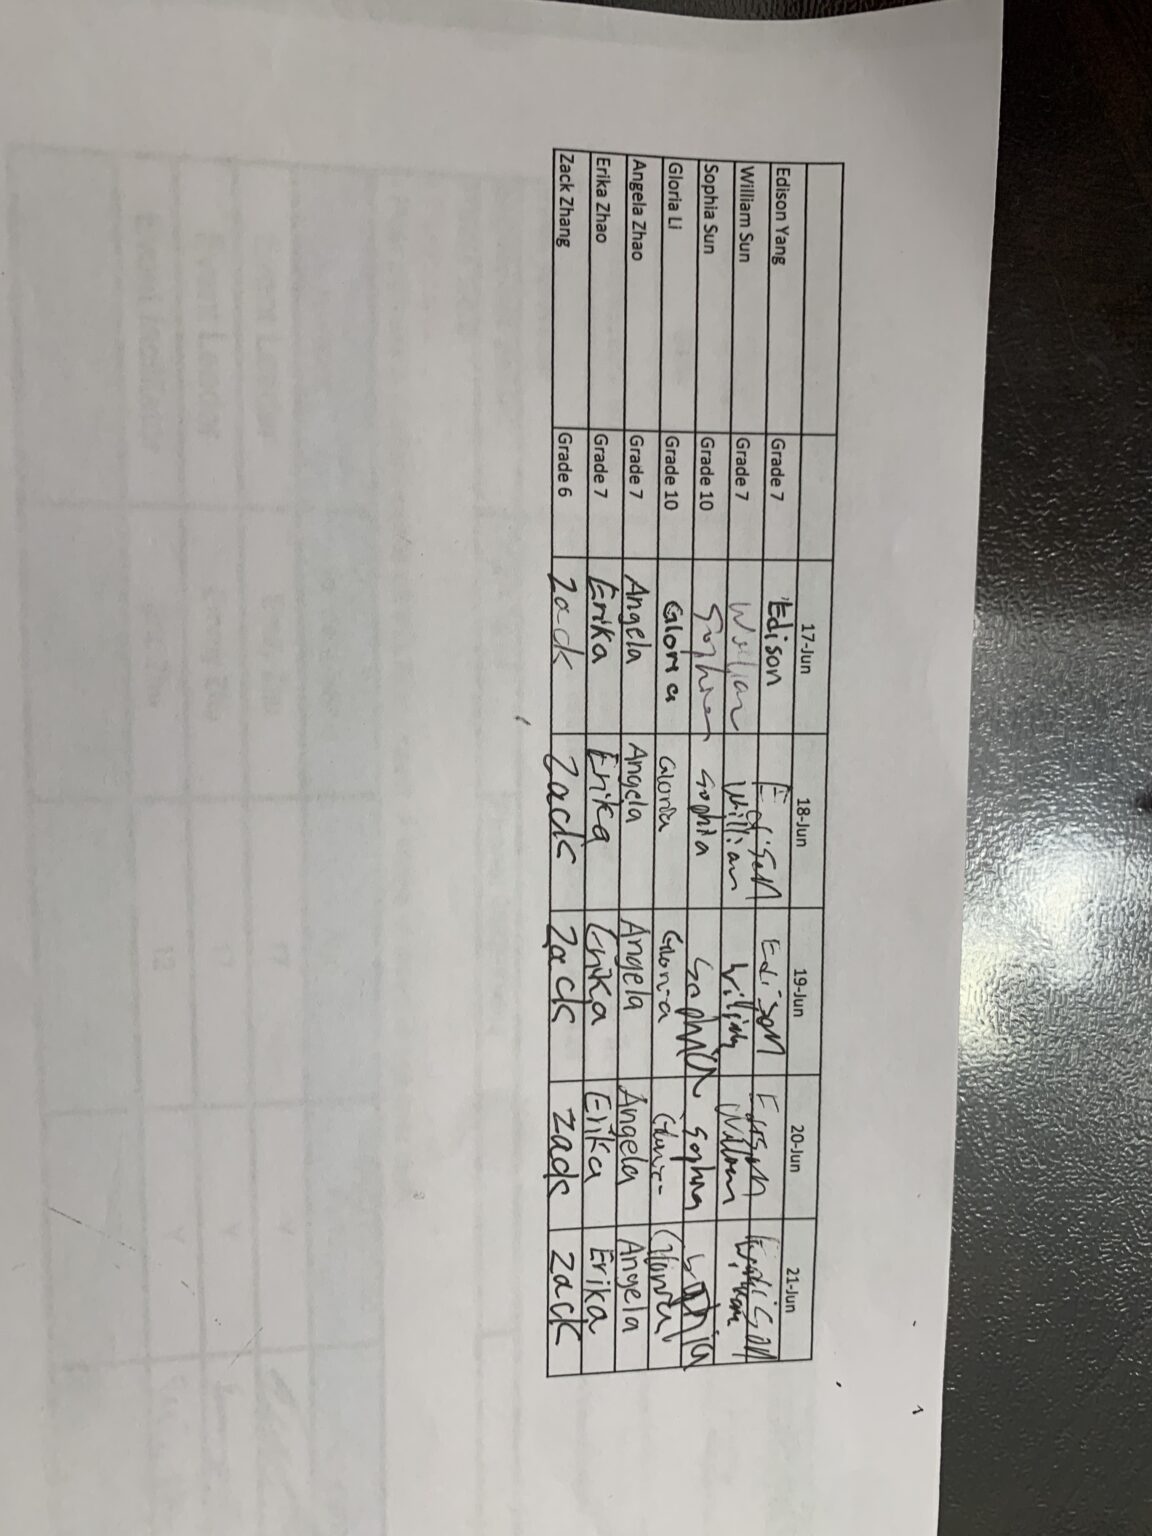 17-Jun 18-Jun 19-Jun 20-Jun 21-Jun
Edison Yang Grade 7 Edison Edison Edison Edison Edison
William Sun Grade 7 William William William William William
Sophia Sun Grade 10 Sophia Sophia Sophia Sophia Sophia
Gloria Li Grade 10 Gloria Gloria Gloria Gloria
Angela Zhao Grade 7 Angela Angela Angela Angela Angela
Erika Zhao Grade 7 Erika Erika Erika Erika Erika
Zack Zhang Grade 6 Zack Zack Zack Zack Zack